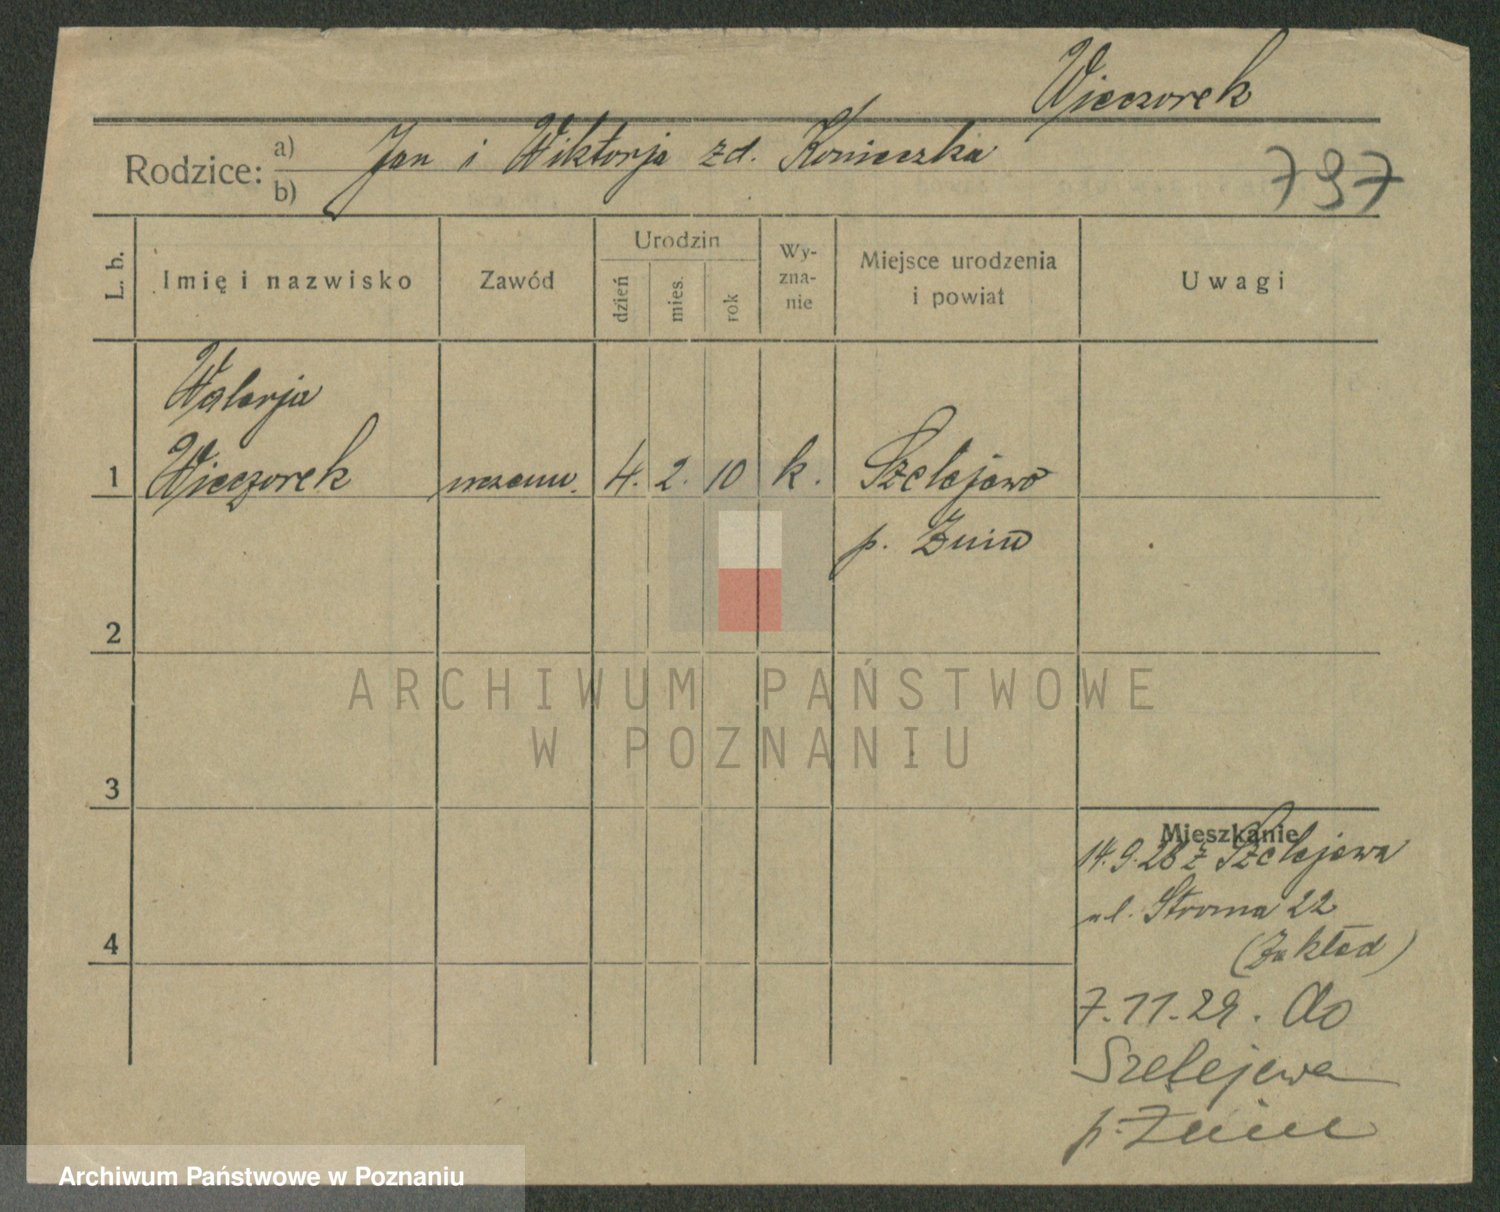 Wieczorek
Rodzice: a) Jan i Wiktorja zd. Konieczka
b)
797
L. b. Imię i nazwisko Zawód Urodzin dzień mies. rok Wyznanie Miejsce urodzenia i powiat Uwagi
Walerja
1 Wieczorek uczenn. 4. 2. 10 k. Szelejewo
p. Żnin
2
ARCHIWUM PAŃSTWOWE
W POZNANIU
3
Mieszkanie
14.9.28 z Szelejewa
ul. Stroma 22
(Zakład)
4
7.11.29. do
Szelejewa
p. Żnin
Archiwum Państwowe w Poznaniu